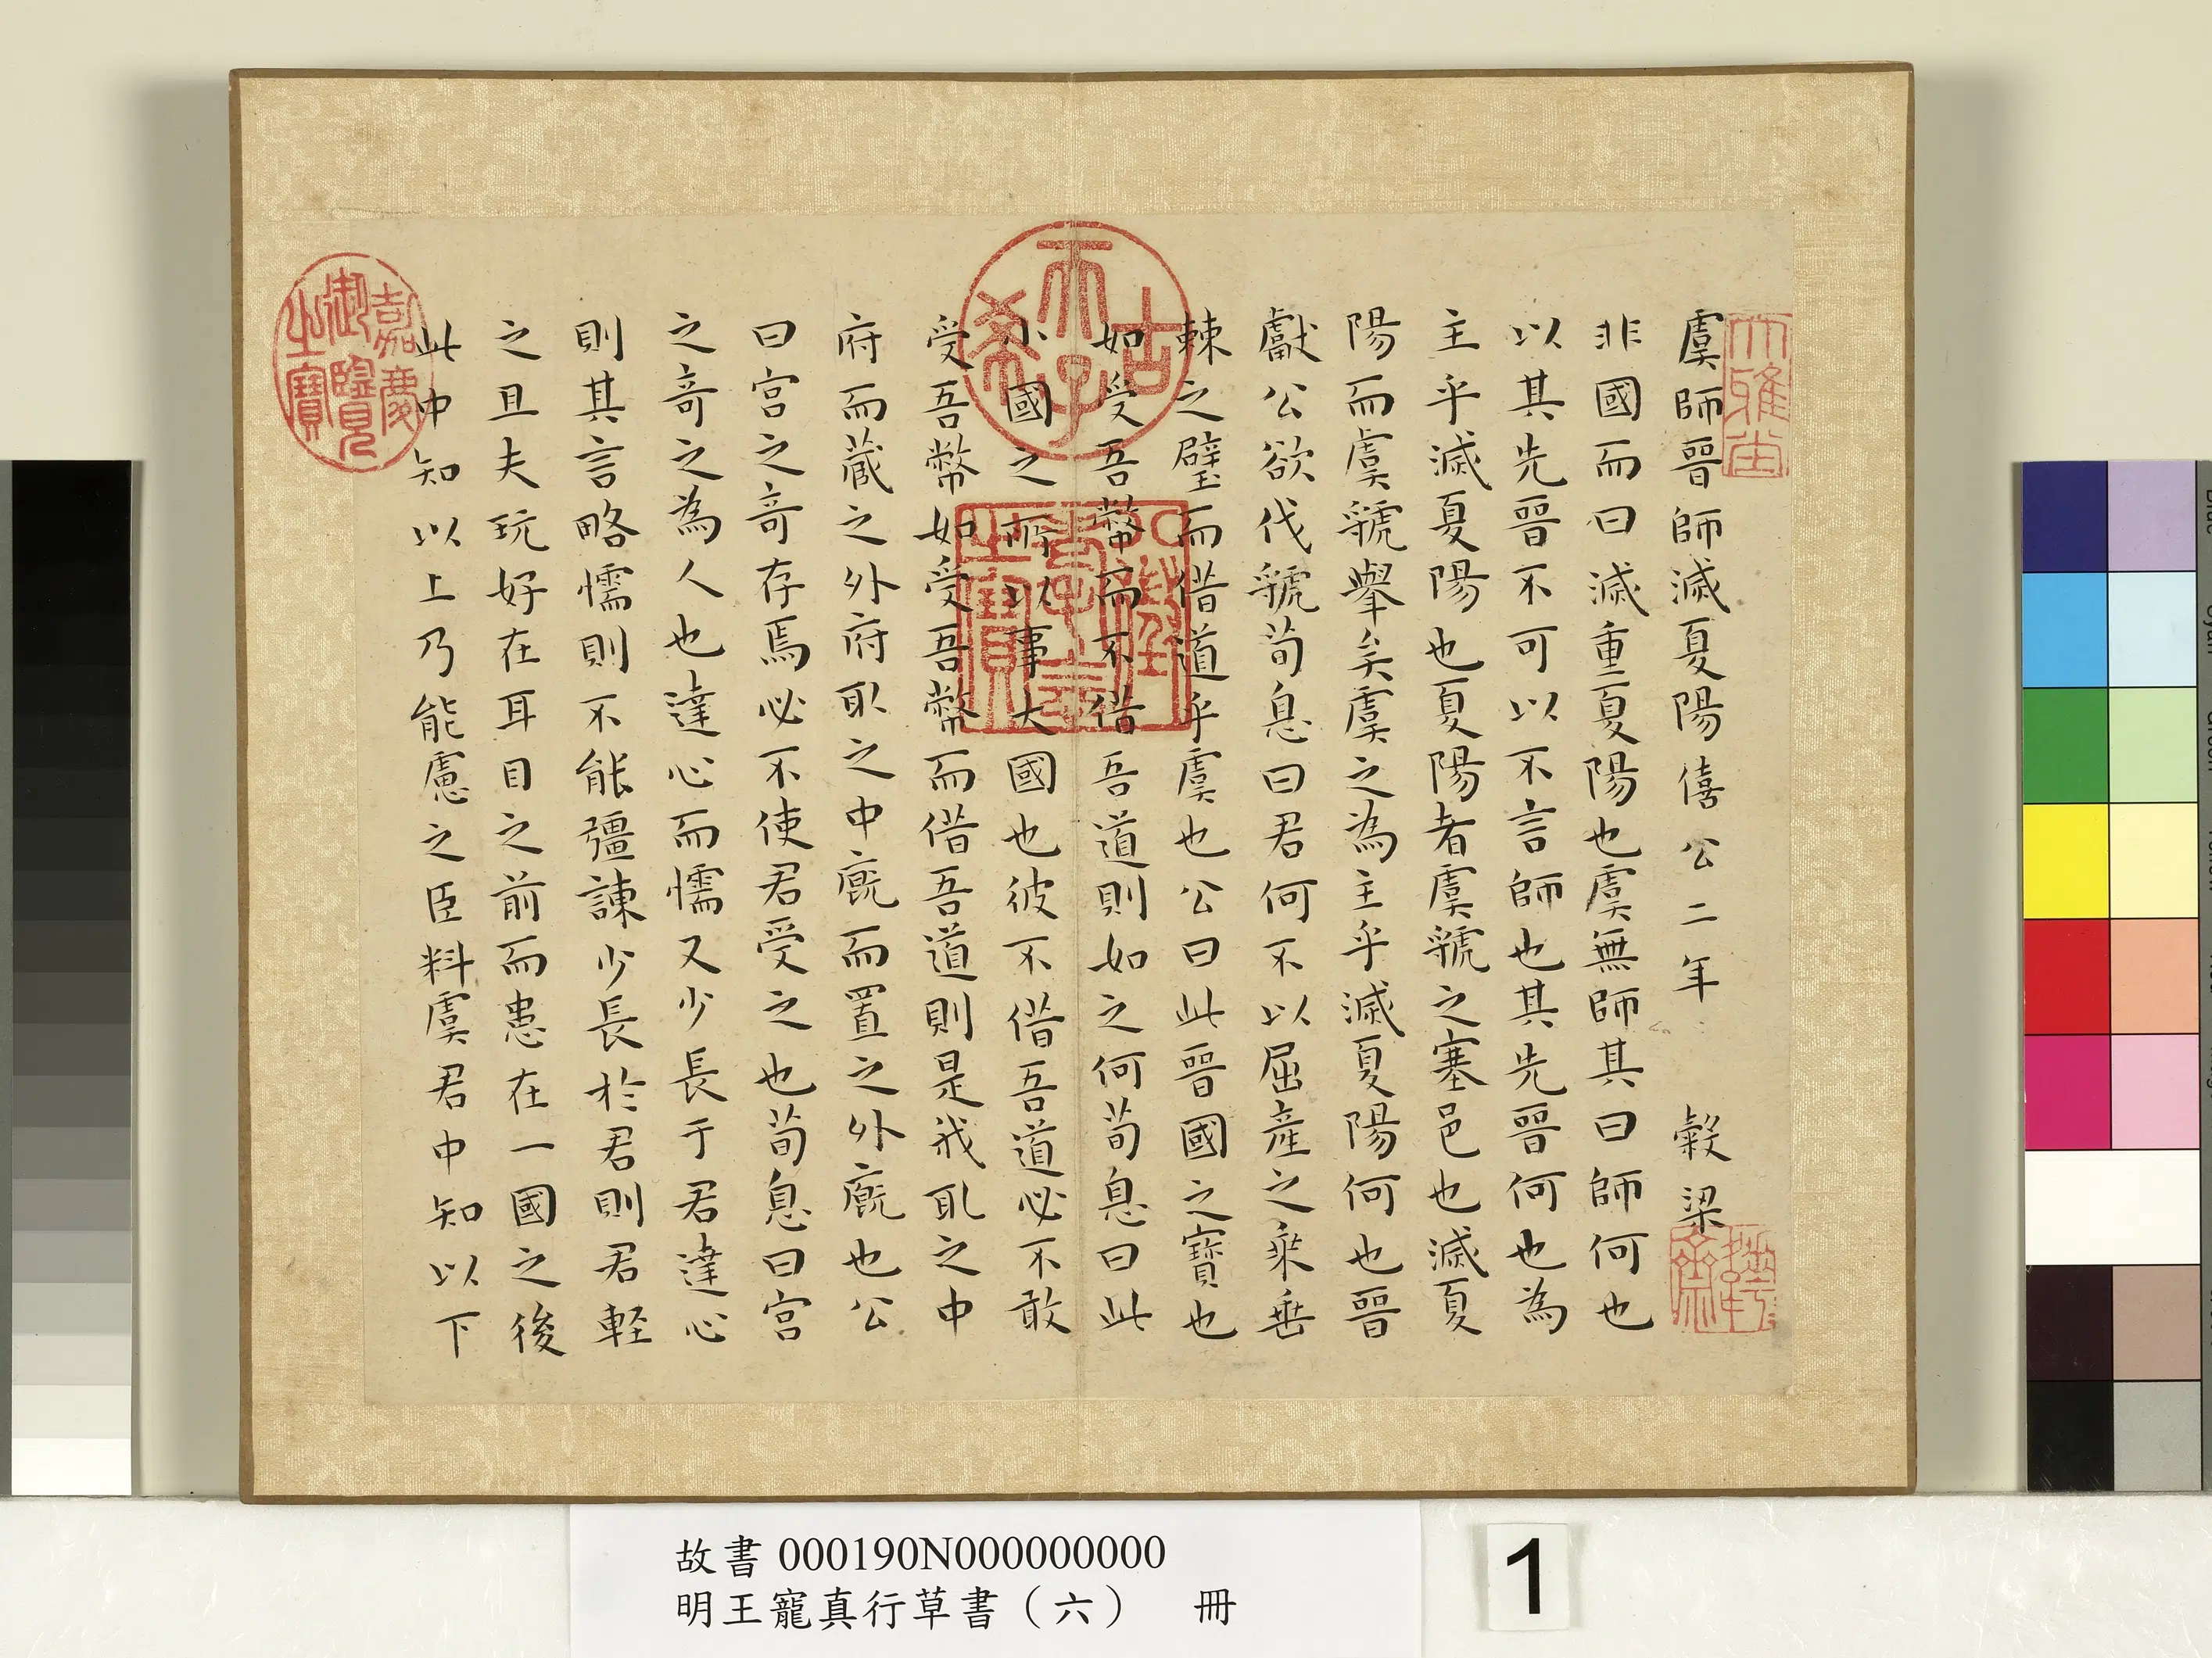 虞師晉師滅夏陽僖公二年 穀梁
非國而曰滅重夏陽也虞無師其曰師何也
以其先晉不可以不言師也其先晉何也為
主乎滅夏陽也夏陽者虞虢之塞邑也滅夏
陽而虞虢舉矣虞之為主乎滅夏陽何也晉
獻公欲伐虢荀息曰君何不以屈產之乘垂
棘之璧而借道乎虞也公曰此晉國之寶也
如受吾幣而不借吾道則如之何荀息曰此
小國之所以事大國也彼不借吾道必不敢
受吾幣如受吾幣而借吾道則是我取之中
府而藏之外府取之中廐而置之外廐也公
曰宮之奇存焉必不使君受之也荀息曰宮
之奇之為人也達心而懦又少長于君達心
則其言略懦則不能彊諫少長於君則君輕
之且夫玩好在耳目之前而患在一國之後
此中知以上乃能慮之臣料虞君中知以下
大雅堂
古希天子
壽
嘉慶御覽之寶
故書 000190N000000000
明王寵真行草書（六） 冊
1